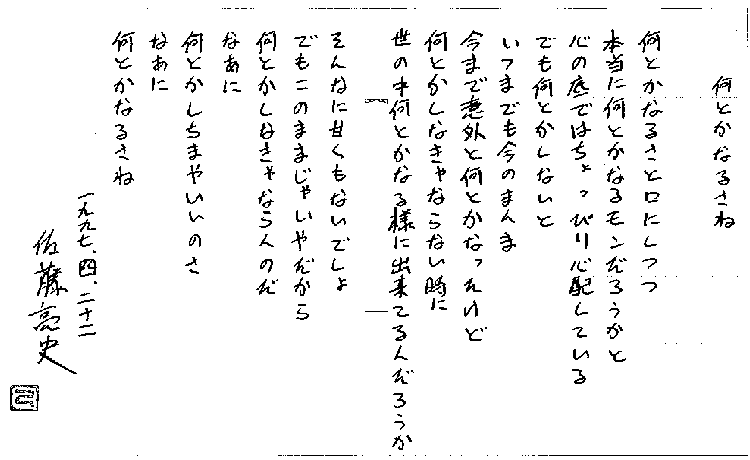 何とかなるさね
何とかなるさと口にしつつ
本当に何とかなるモンだろうかと
心の底ではちょっぴり心配している
でも何とかしないと
いつまでも今のまんま
今まで意外と何とかなったけど
何とかしなきゃならない時に
世の中何とかなる様に出来てるんだろうか
そんなに甘くもないでしょ
でもこのままじゃいやだから
何とかしなきゃならんのだ
なあに
何とかしちまやいいのさ
なあに
何とかなるさね
一九九七、四、二十二
佐藤亮史